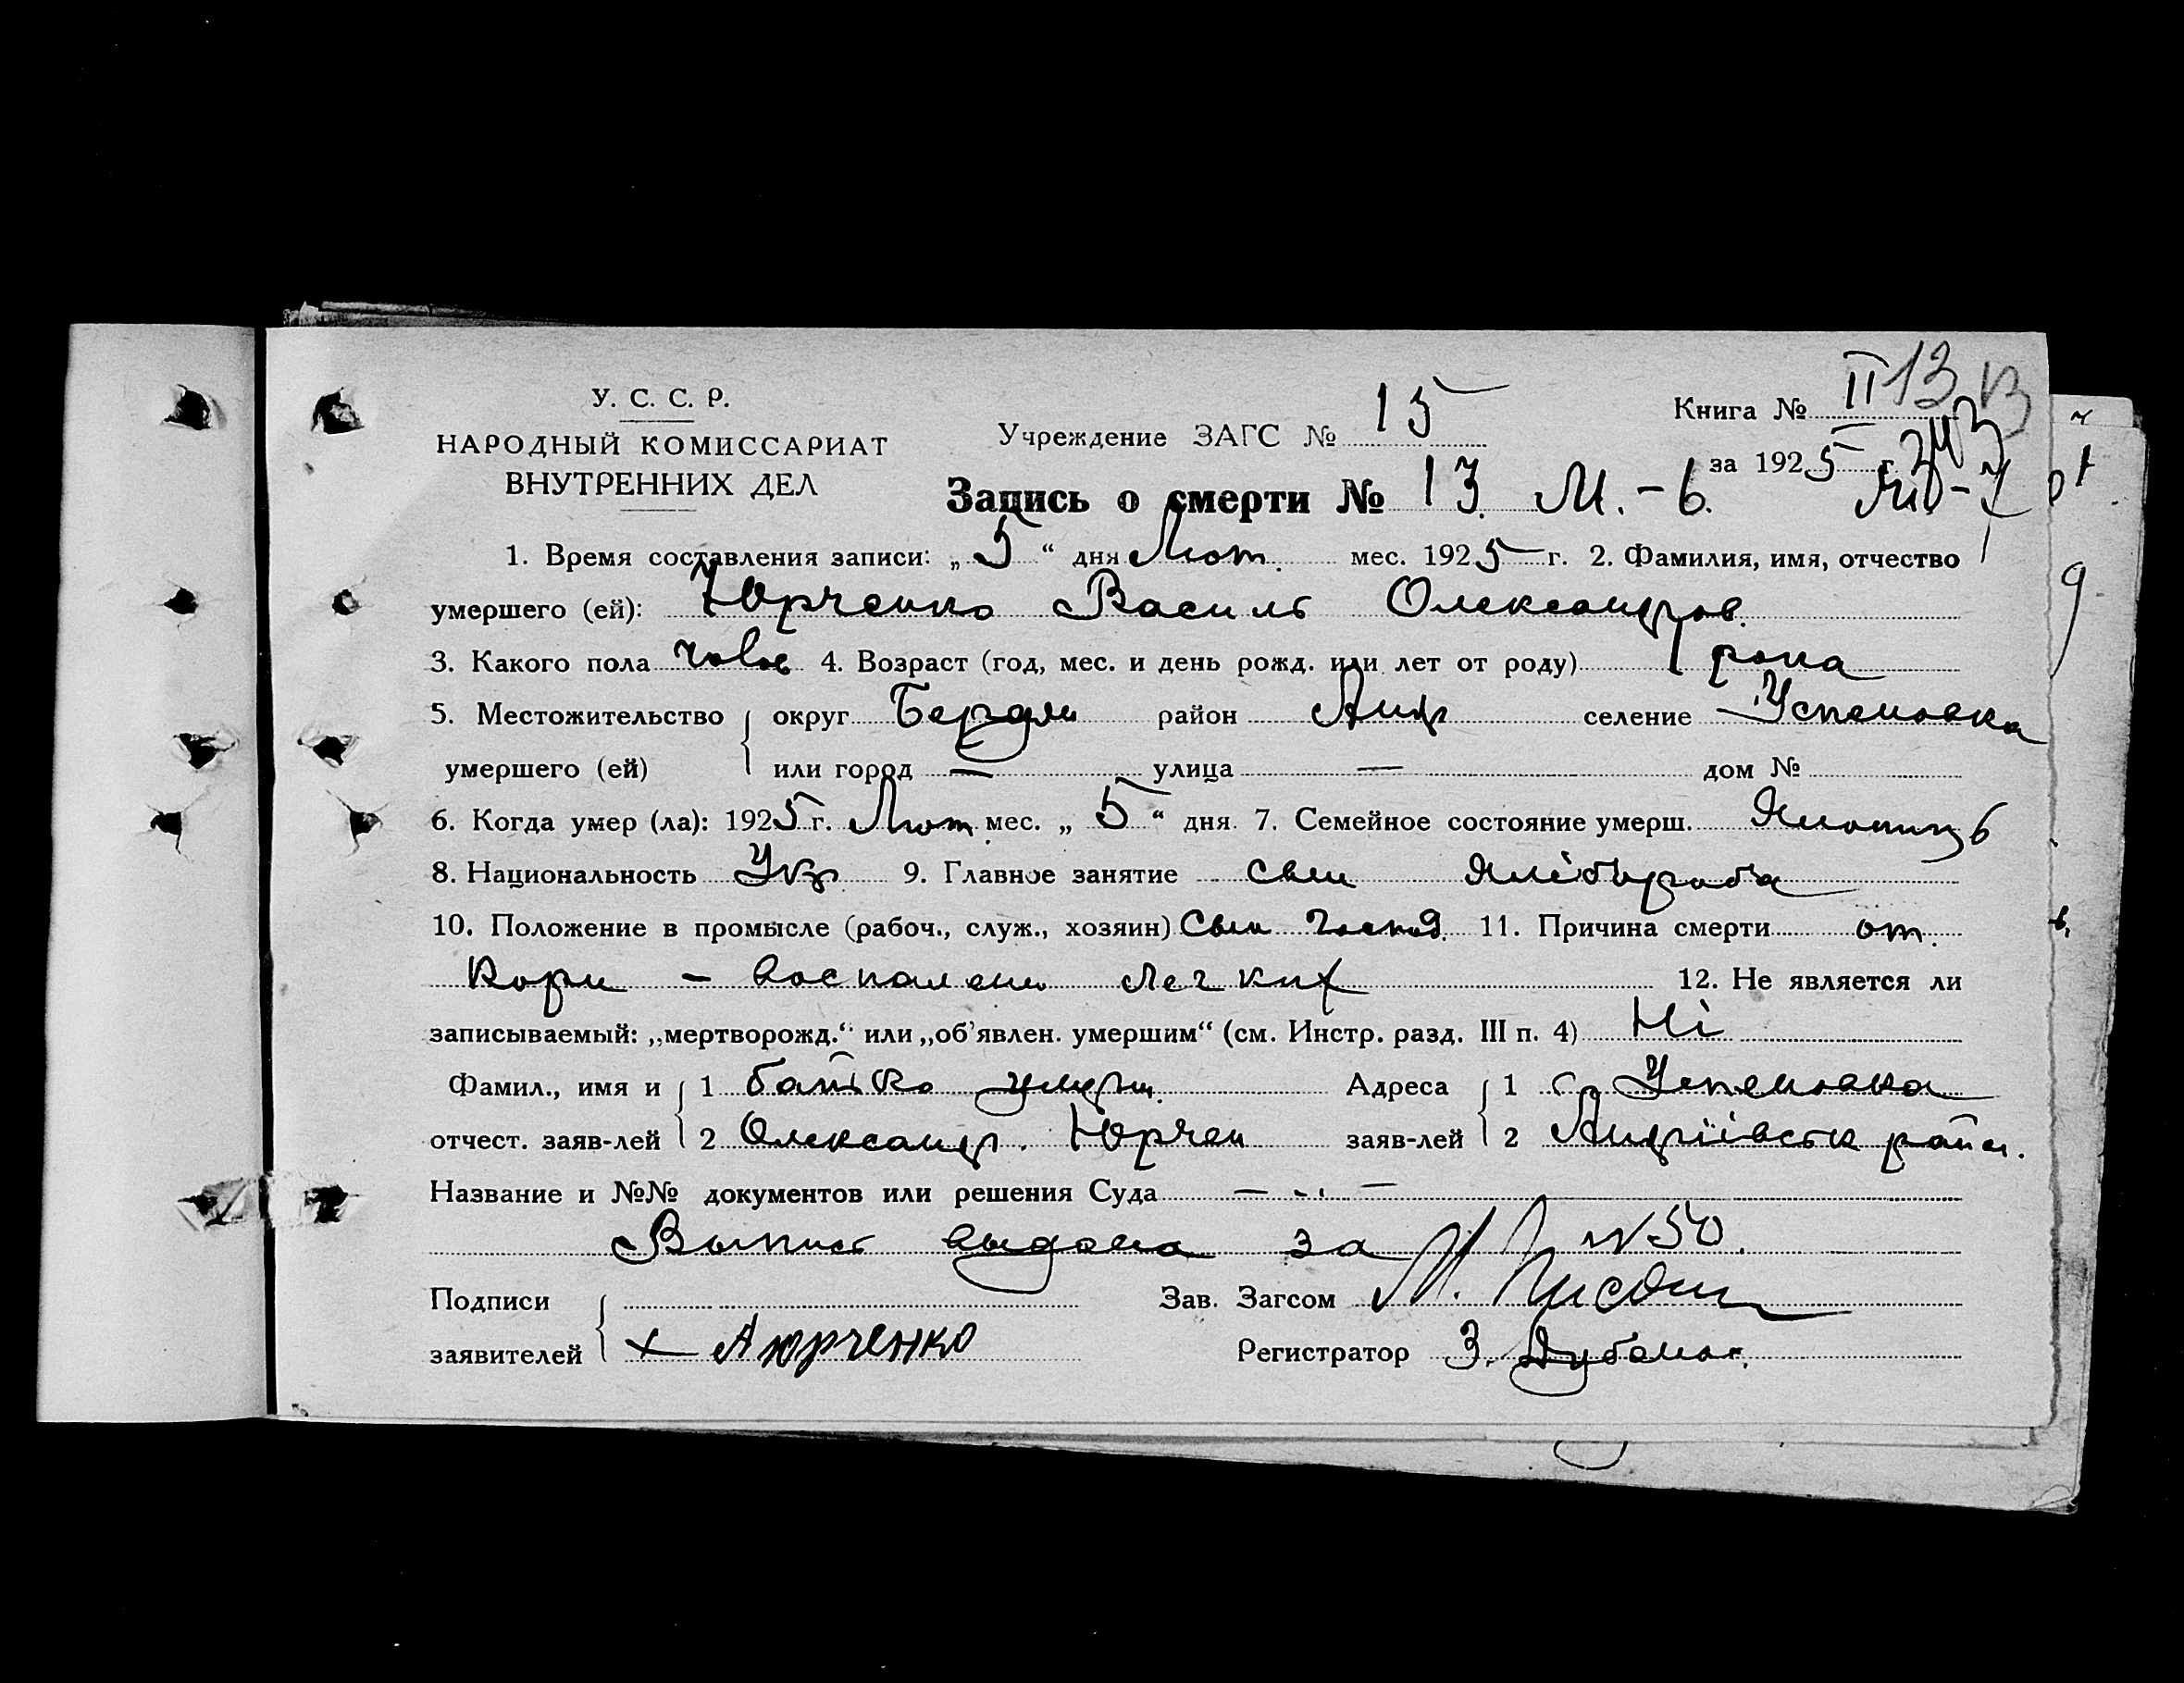 У. С. С. Р.
НАРОДНЫЙ КОМИССАРИАТ
ВНУТРЕННИХ ДЕЛ
Учреждение ЗАГС № 15
Книга № II 13 13
за 1925 г.
Запись о смерти № 13. М. - 6.
1. Время составления записи: „ 5 “ дня Лют. мес. 1925 г. 2. Фамилия, имя, отчество
умершего (ей): Юрченко Василь Олександров.
3. Какого пола чолов 4. Возраст (год, мес. и день рожд. или лет от роду) 1 рока
5. Местожительство округ Бердян район Андр селение Успеновка
умершего (ей) или город — улица — дом №
6. Когда умер (ла): 1925 г. Лют. мес. „ 5 “ дня 7. Семейное состояние умерш.
8. Национальность Укр. 9. Главное занятие Хлібороба
10. Положение в промысле (рабоч., служ., хозяин) 11. Причина смерти от.
Кори - воспалени легких 12. Не является ли
записываемый: „мертворожд.“ или „об'явлен. умершим“ (см. Инстр. разд. III п. 4) Ні
Фамил., имя и 1 батько умерш. Адреса 1 с. Успеновка
отчест. заяв-лей 2 Олександр. Юрчен заяв-лей 2 Андріївськ район.
Название и №№ документов или решения Суда — — —
Выпись выдана за №50.
Подписи Зав. Загсом
заявителей х А Юрченко Регистратор З.